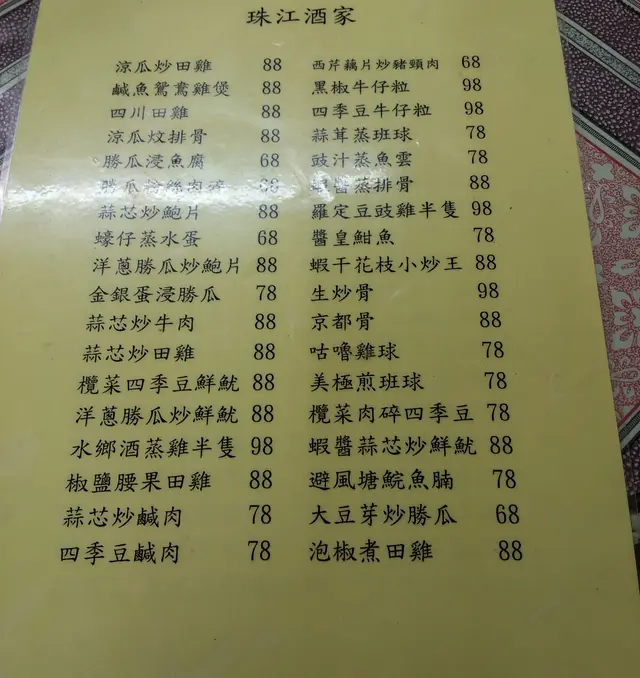 珠江酒家
涼瓜炒田雞 88
鹹魚鴛鴦雞煲 88
四川田雞 88
涼瓜炆排骨 88
勝瓜浸魚腐 68
勝瓜粉絲肉碎
蒜芯炒鮑片 88
蠔仔蒸水蛋 68
洋蔥勝瓜炒鮑片 88
金銀蛋浸勝瓜 78
蒜芯炒牛肉 88
蒜芯炒田雞 88
欖菜四季豆鮮魷 88
洋蔥勝瓜炒鮮魷 88
水鄉酒蒸雞半隻 98
椒鹽腰果田雞 88
蒜芯炒鹹肉 78
四季豆鹹肉 78
西芹藕片炒豬頸肉 68
黑椒牛仔粒 98
四季豆牛仔粒 98
蒜茸蒸班球 78
豉汁蒸魚雲 78
蝦醬蒸排骨 88
羅定豆豉雞半隻 98
醬皇魽魚 78
蝦干花枝小炒王 88
生炒骨 98
京都骨 88
咕嚕雞球 78
美極煎班球 78
欖菜肉碎四季豆 78
蝦醬蒜芯炒鮮魷 88
避風塘鯇魚腩 78
大豆芽炒勝瓜 68
泡椒煮田雞 88